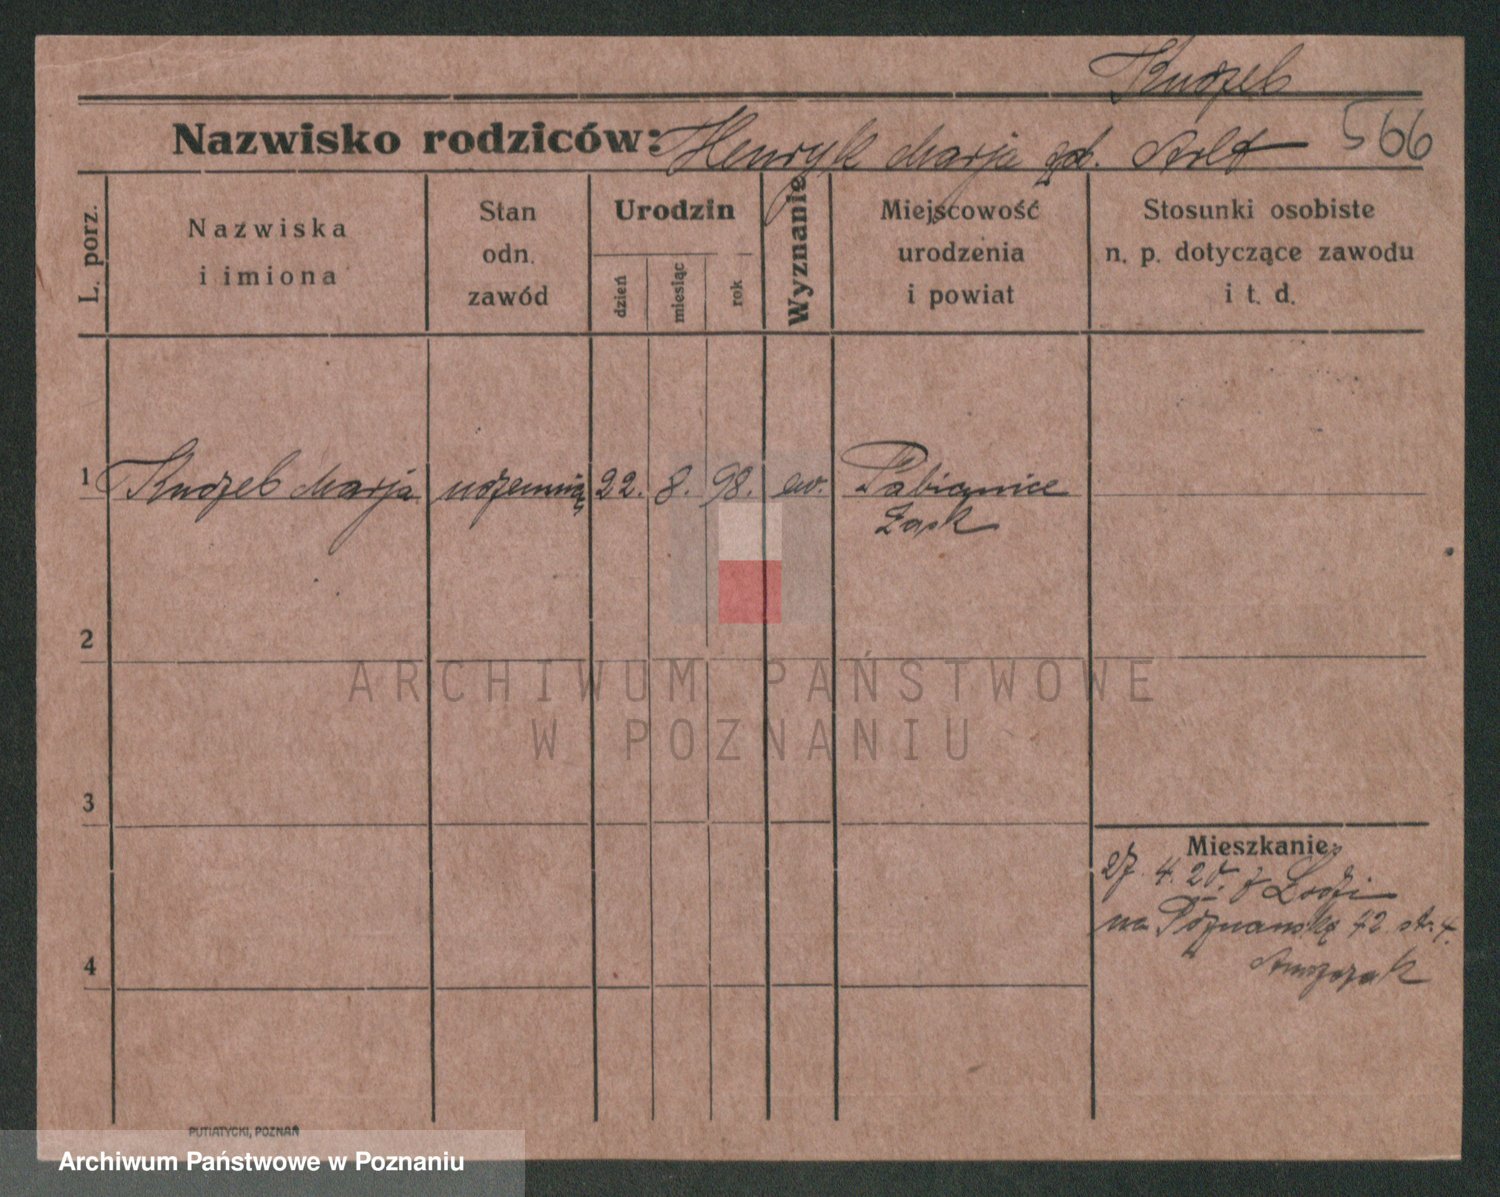 Knozeb
Nazwisko rodziców: Henryk Marja 566
L. porz.
Nazwiska
i imiona
Stan
odn.
zawód
Urodzin
dzień
miesiąc
rok
Wyznanie
Miejscowość
urodzenia
i powiat
Stosunki osobiste
n. p. dotyczące zawodu
i t. d.
1 Knozeb Marja 22. 8. 98. ew. Pabianice
Łask
2
3
4
Mieszkanie:
27. 4. z Łodzi
na Poznańską 72. str. 4.
ARCHIWUM PAŃSTWOWE
W POZNANIU
PUTIATYCKI, POZNAŃ
Archiwum Państwowe w Poznaniu